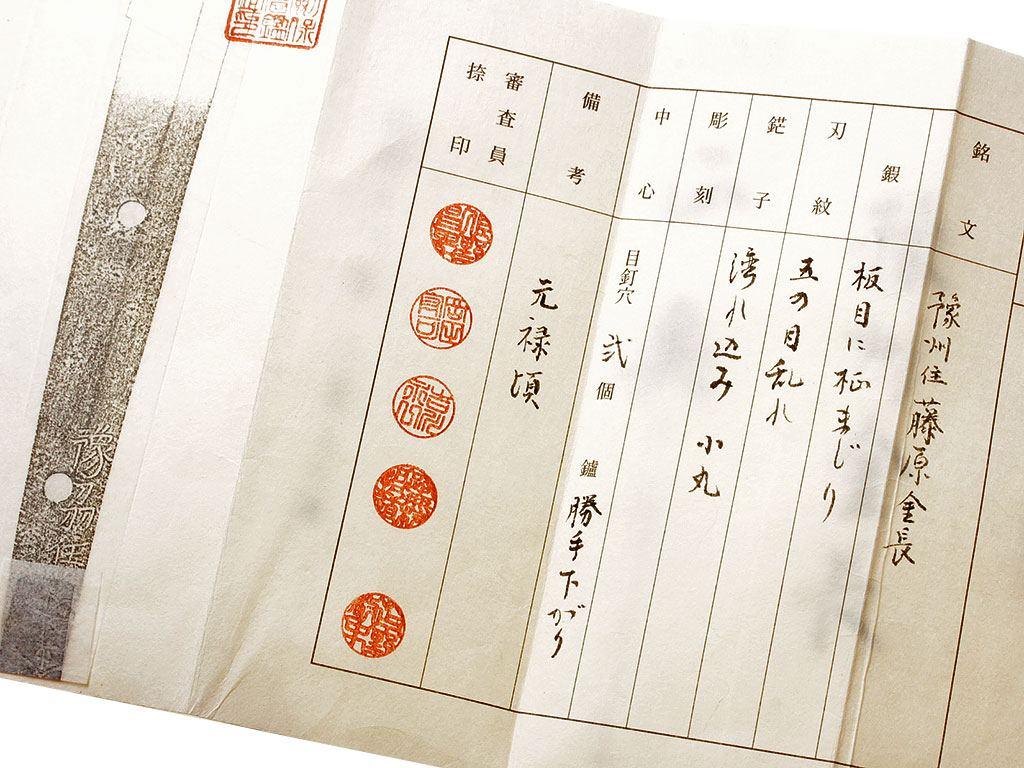 銘文
豫州住藤原金長
鍜
板目に柾まじり
刃紋
五の目乱れ
鋩子
湾れ込み 小丸
彫刻
中心
目釘穴 弐個 鑪 勝手下がり
備考
元禄頃
審査員
捺印
豫州住